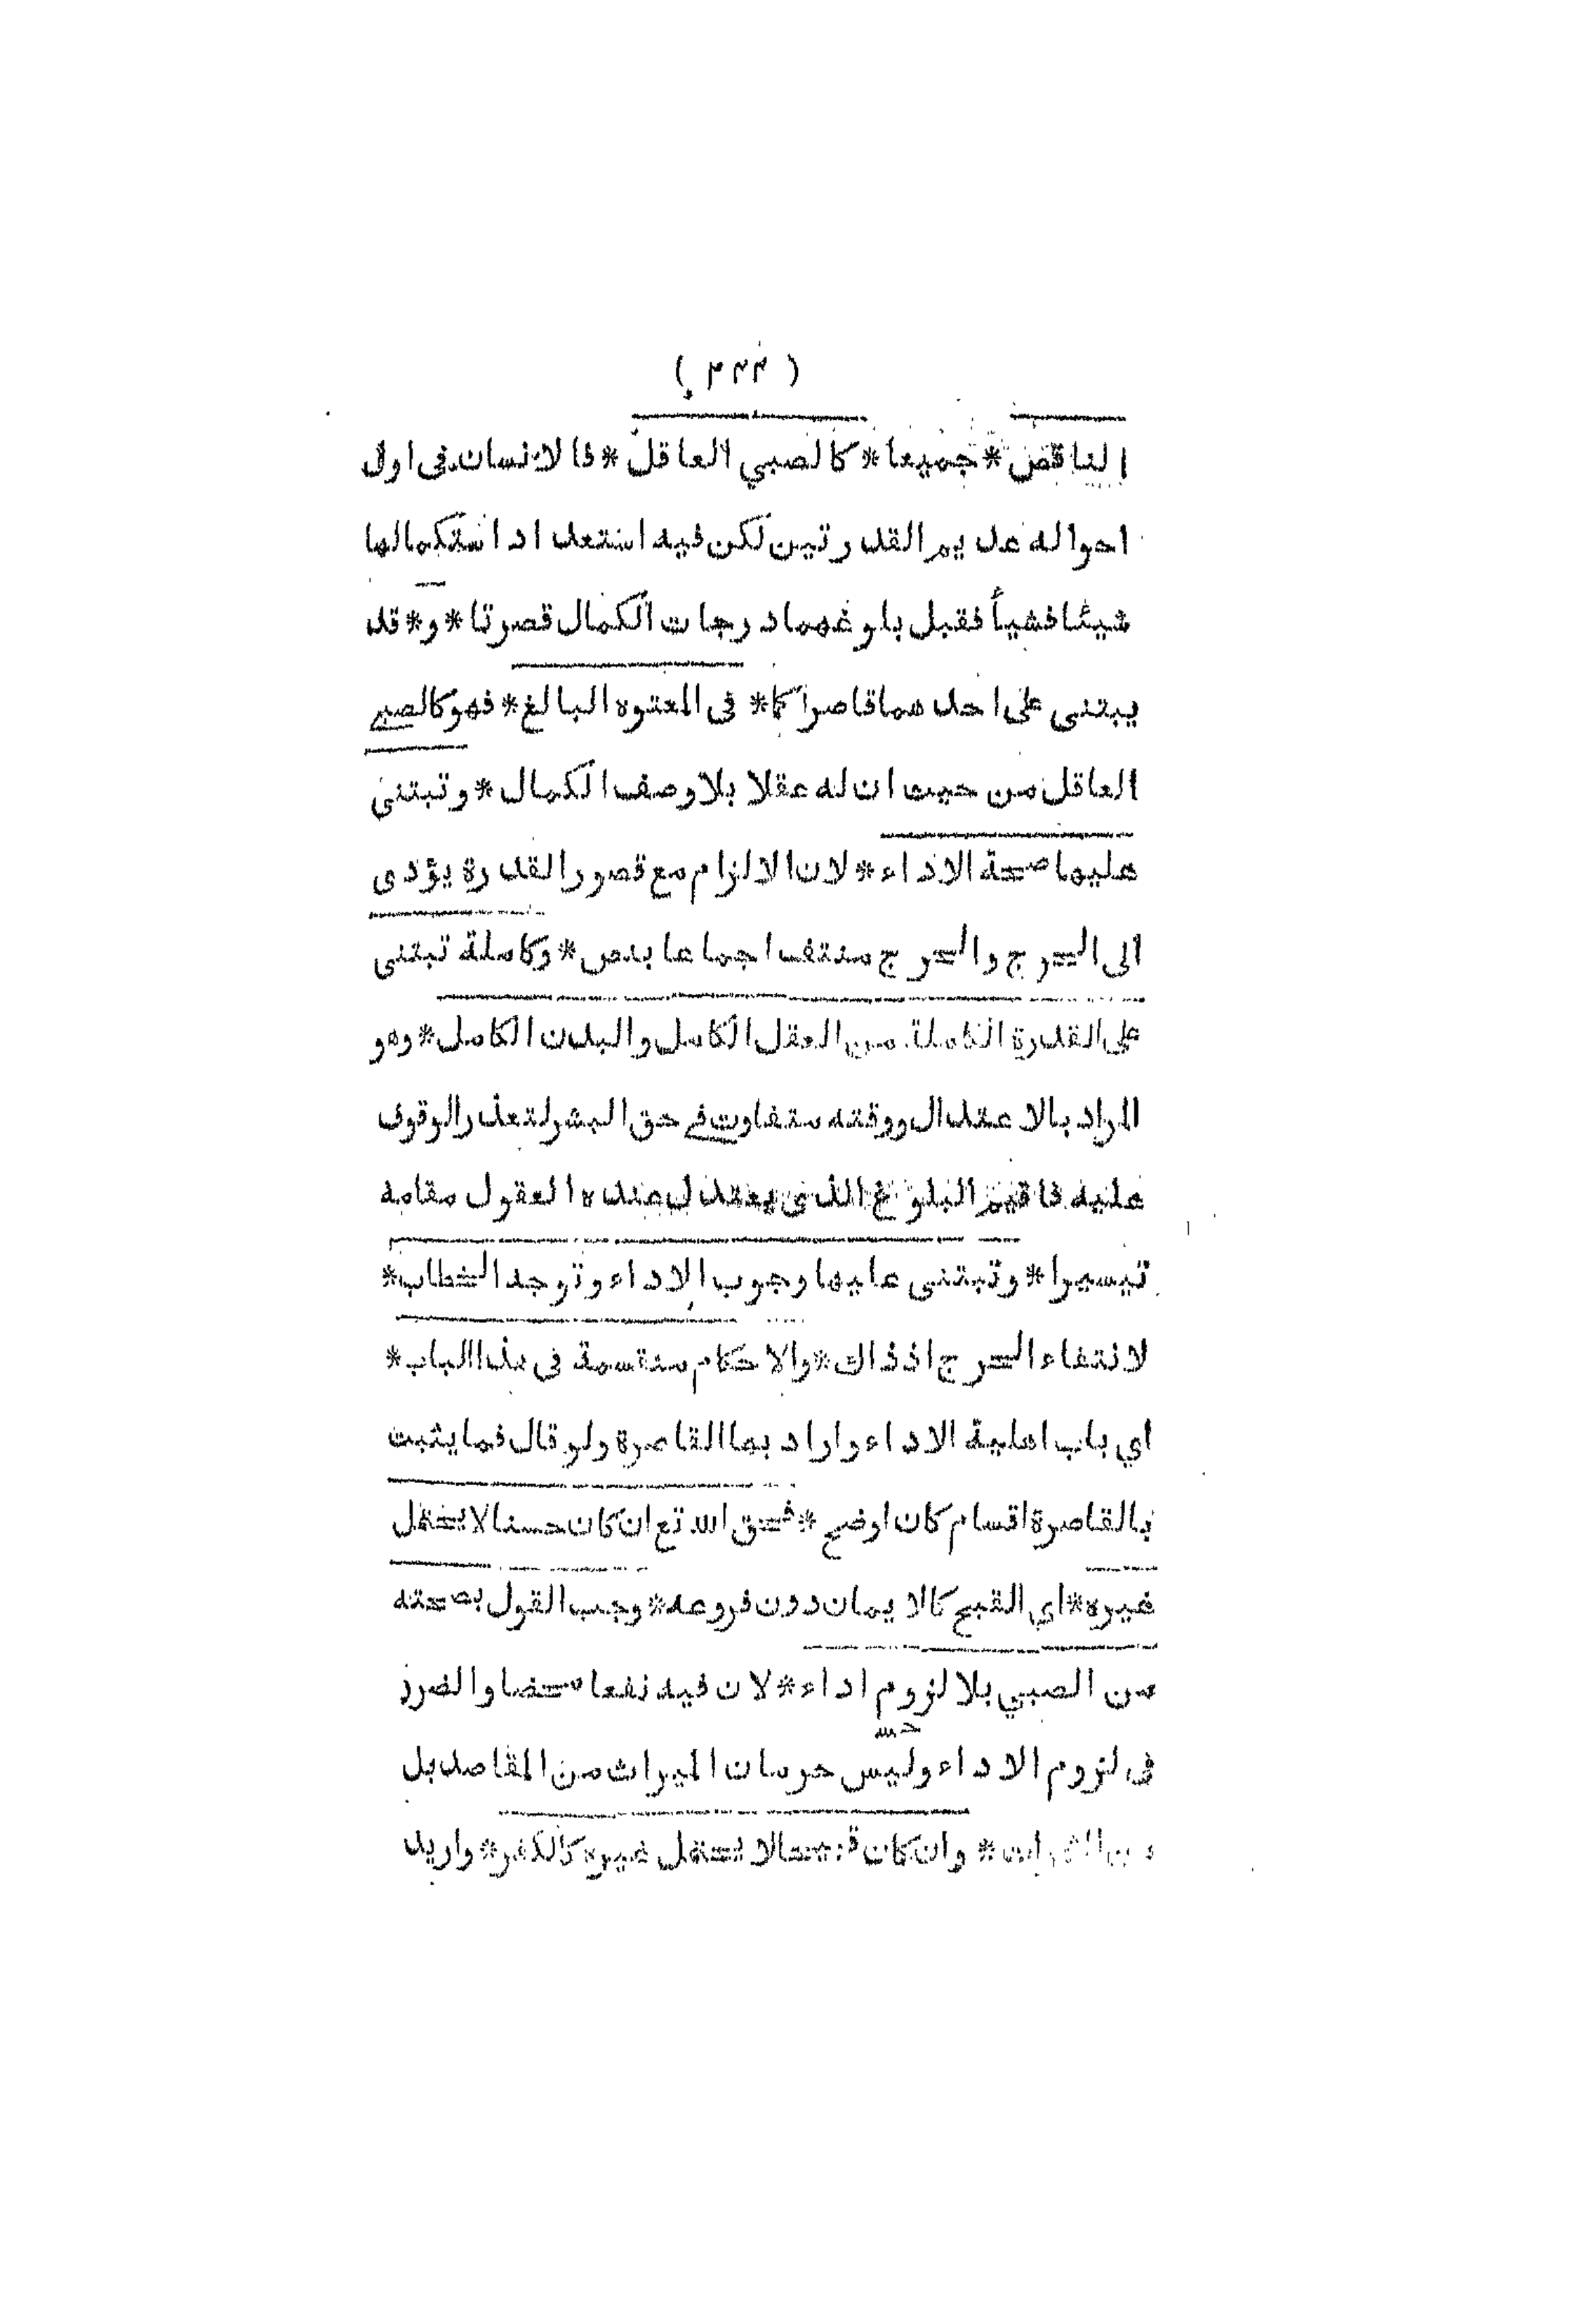 الناقص * جميعا * كالصبي العاقل * فالانسان فى اول
احواله عديم القدرتين لكن فيه استعداد استكمالها
شيئا فشيأ فقبل بلوغهما درجات الكمال قصرتا * و * قد
يبتنى على احدهما قاصرا كما * فى المعتوه البالغ * فهو كالصبے
العاقل من حيث ان له عقلا بلا وصف الكمال * وتبتنى
عليها صحة الاداء * لان الالزام مع قصور القدرة يؤدى
الى الحرج والحرج منتف اجماعا بنص * وكاملة تبتنى
على القدرة الكاملة من العقل الكامل والبدن الكامل * وهو
المراد بالاعتدال ووقته متفاوت فے حق البشر لتعذر الوقوف
عليه فاقيم البلوغ الذى يعتدل عنده العقول مقامه
تيسيرا * وتبتنى عليها وجوب الاداء وتوجه الخطاب *
لانتفاء الحرج اذ ذاك * والاحكام منقسمة فى هذا الباب *
اي باب اهلية الاداء واراد بها القاصرة ولو قال فما يثبت
بالقاصرة اقسام كان اوضح * فحق الله تع ان كان حسنا لا يحتمل
غيره * اي القبح كالايمان دون فروعه * وجب القول بصحته
من الصبي بلا لزوم اداء * لان فيه نفعا محضا والضرر
فى لزوم الاداء وليس حرمان الميراث من المقاصد بل
من الثمرات * وان كان قبيحا لا يحتمل غيره كالكفر * واريد